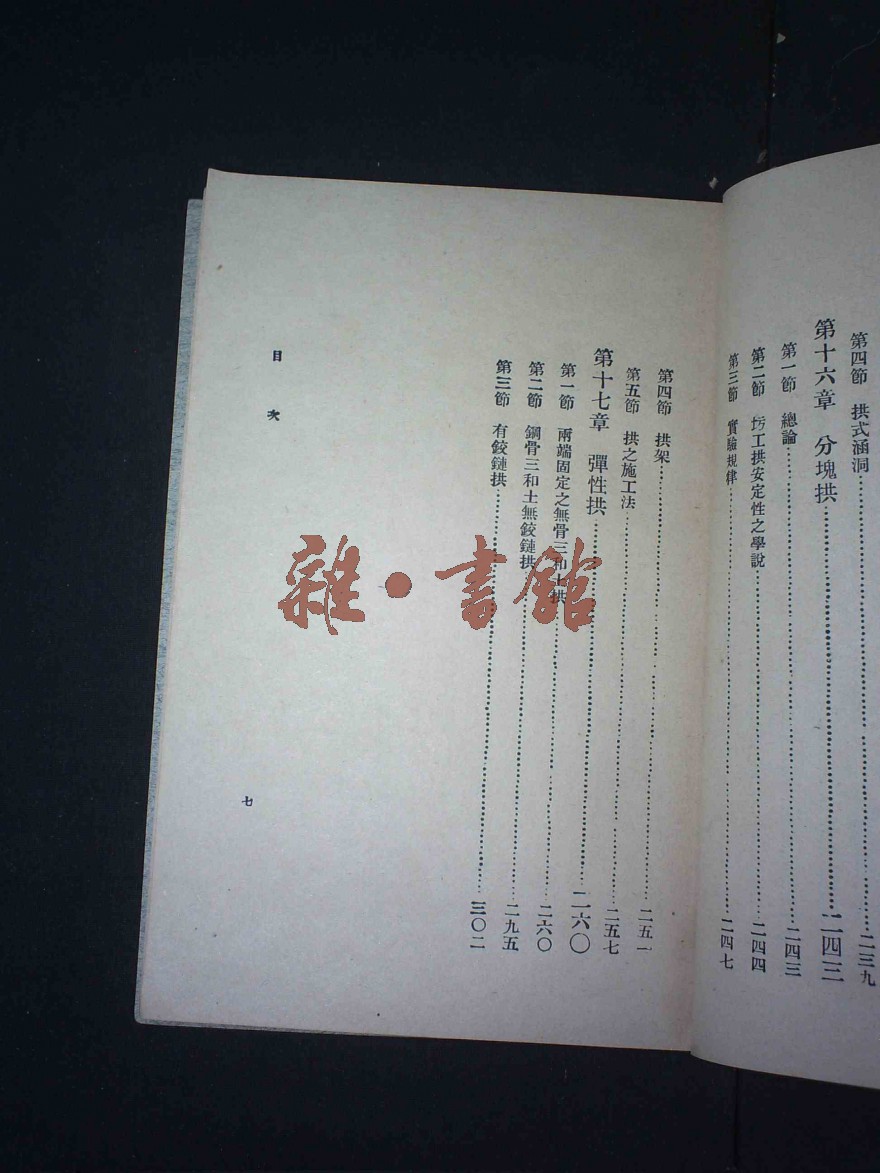 第四節　拱式涵洞……二三九
第十六章　分塊拱……二四三
第一節　總論……二四三
第二節　圬工拱安定性之學說……二四四
第三節　實驗規律……二四七
第四節　拱架……二五一
第五節　拱之施工法……二五七
第十七章　彈性拱……二六〇
第一節　兩端固定之無骨三和土拱……二六〇
第二節　鋼骨三和土無鉸鏈拱……二九五
第三節　有鉸鏈拱……三〇二
目次
七
雜·書館